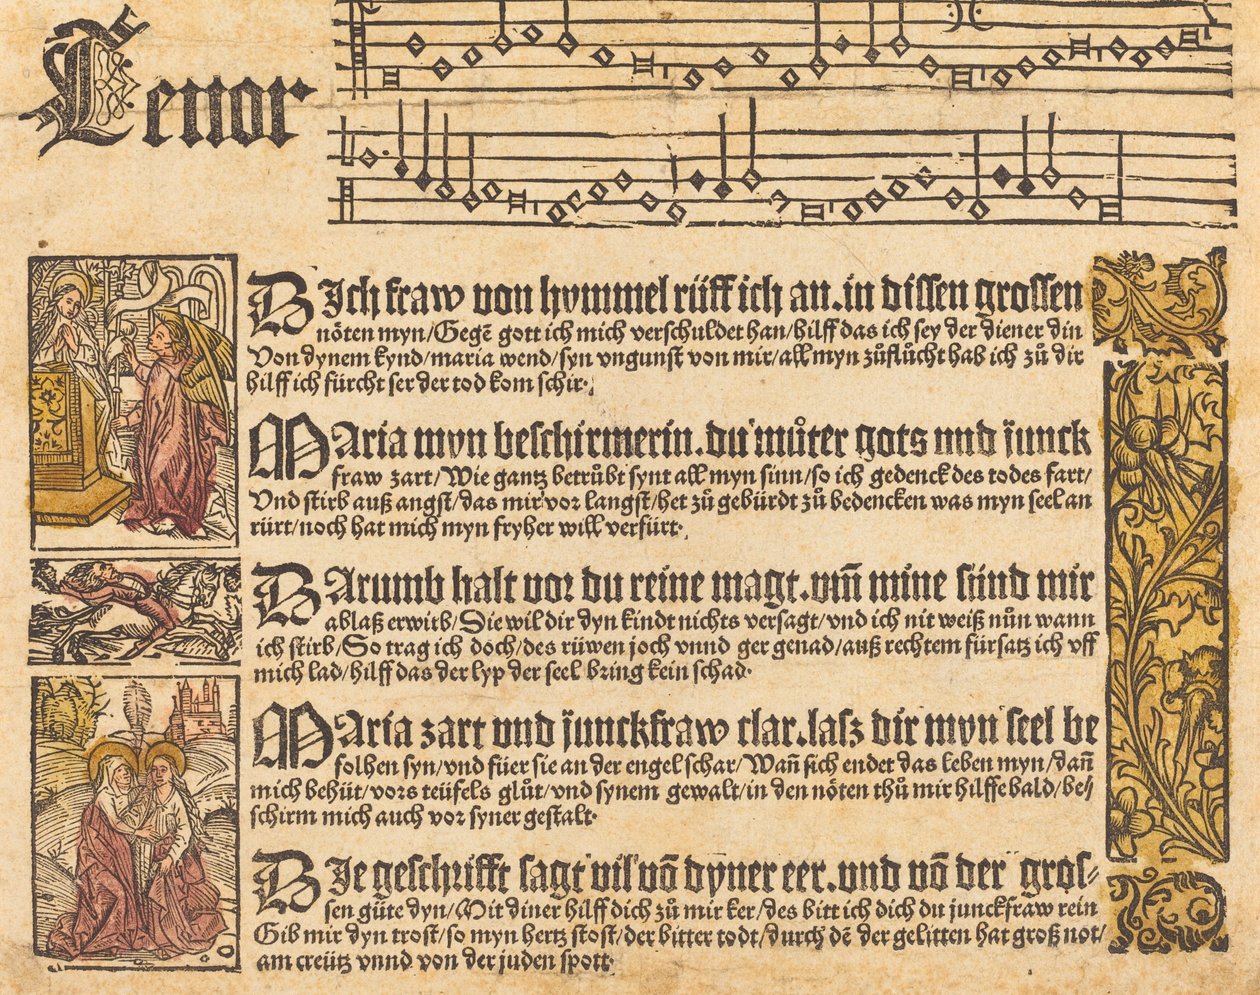 Tenor
DIch fraw von hymmel rüff ich an. in dissen grossen
nöten myn/Gegē gott ich mich verschuldet han/hilff das ich sey der diener din
Von dynem kynd/maria wend/syn vngunst von mir/all myn zůflücht hab ich zů dir
hilff ich fürcht ser der tod kom schir.
MAria myn beschirmerin. du můter gots vnd iunck
fraw zart/Wie gantz betrůbt synt all myn sinn/so ich gedenck des todes fart/
Vnd stirb auß angst/das mir vor langst/het zů gebürdt zů bedencken was myn seel an
rürt/noch hat mich myn fryher will verfürt.
DArumb halt vor du reine magt. vm̄ mine sünd mir
ablaß erwirb/Sie wil dir dyn kindt nichts versagt/vnd ich nit weiß nůn wann
ich stirb/So trag ich doch/des rüwen joch vnnd ger genad/auß rechtem fürsatz ich vff
mich lad/hilff das der lyp der seel bring kein schad.
MAria zart vnd iunckfraw clar. lasz dir myn seel be
folhen syn/vnd füer sie an der engel schar/Wan̄ sich endet das leben myn/dan̄
mich behüt/vors teüfels glůt/vnd synem gewalt/in den nöten thů mir hilffe bald/be/
schirm mich auch vor syner gestalt.
DIe geschrifft sagt vil vō dyner eer. vnd vō der gros⸗
sen güte dyn/Mit diner hilff dich zů mir ker/des bitt ich dich du junckfraw rein
Gib mir dyn trost/so myn hertz stost/der bitter todt/durch dē der gelitten hat groß not/
am creütz vnnd von der juden spott.